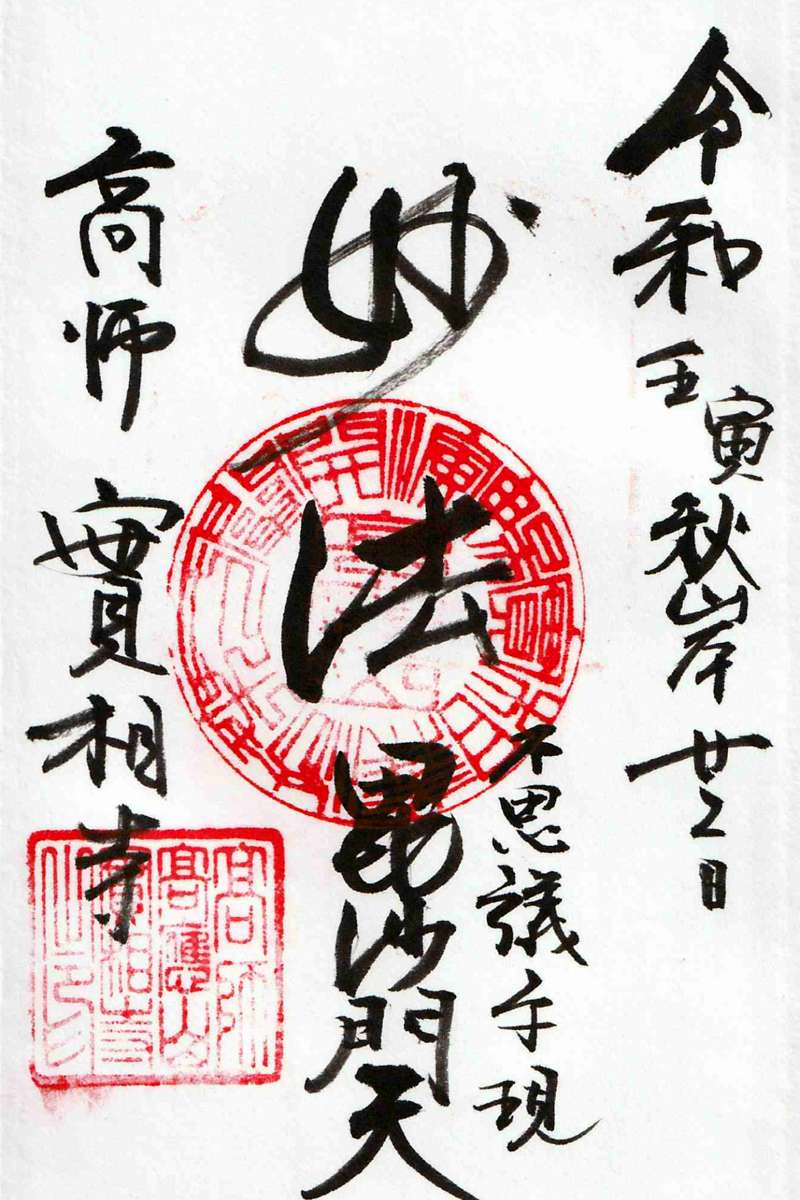 令和壬寅秋岸廿二日
妙法
不思議示現
毘沙門天
高师
實相寺
高師
高應山
實相寺
之印